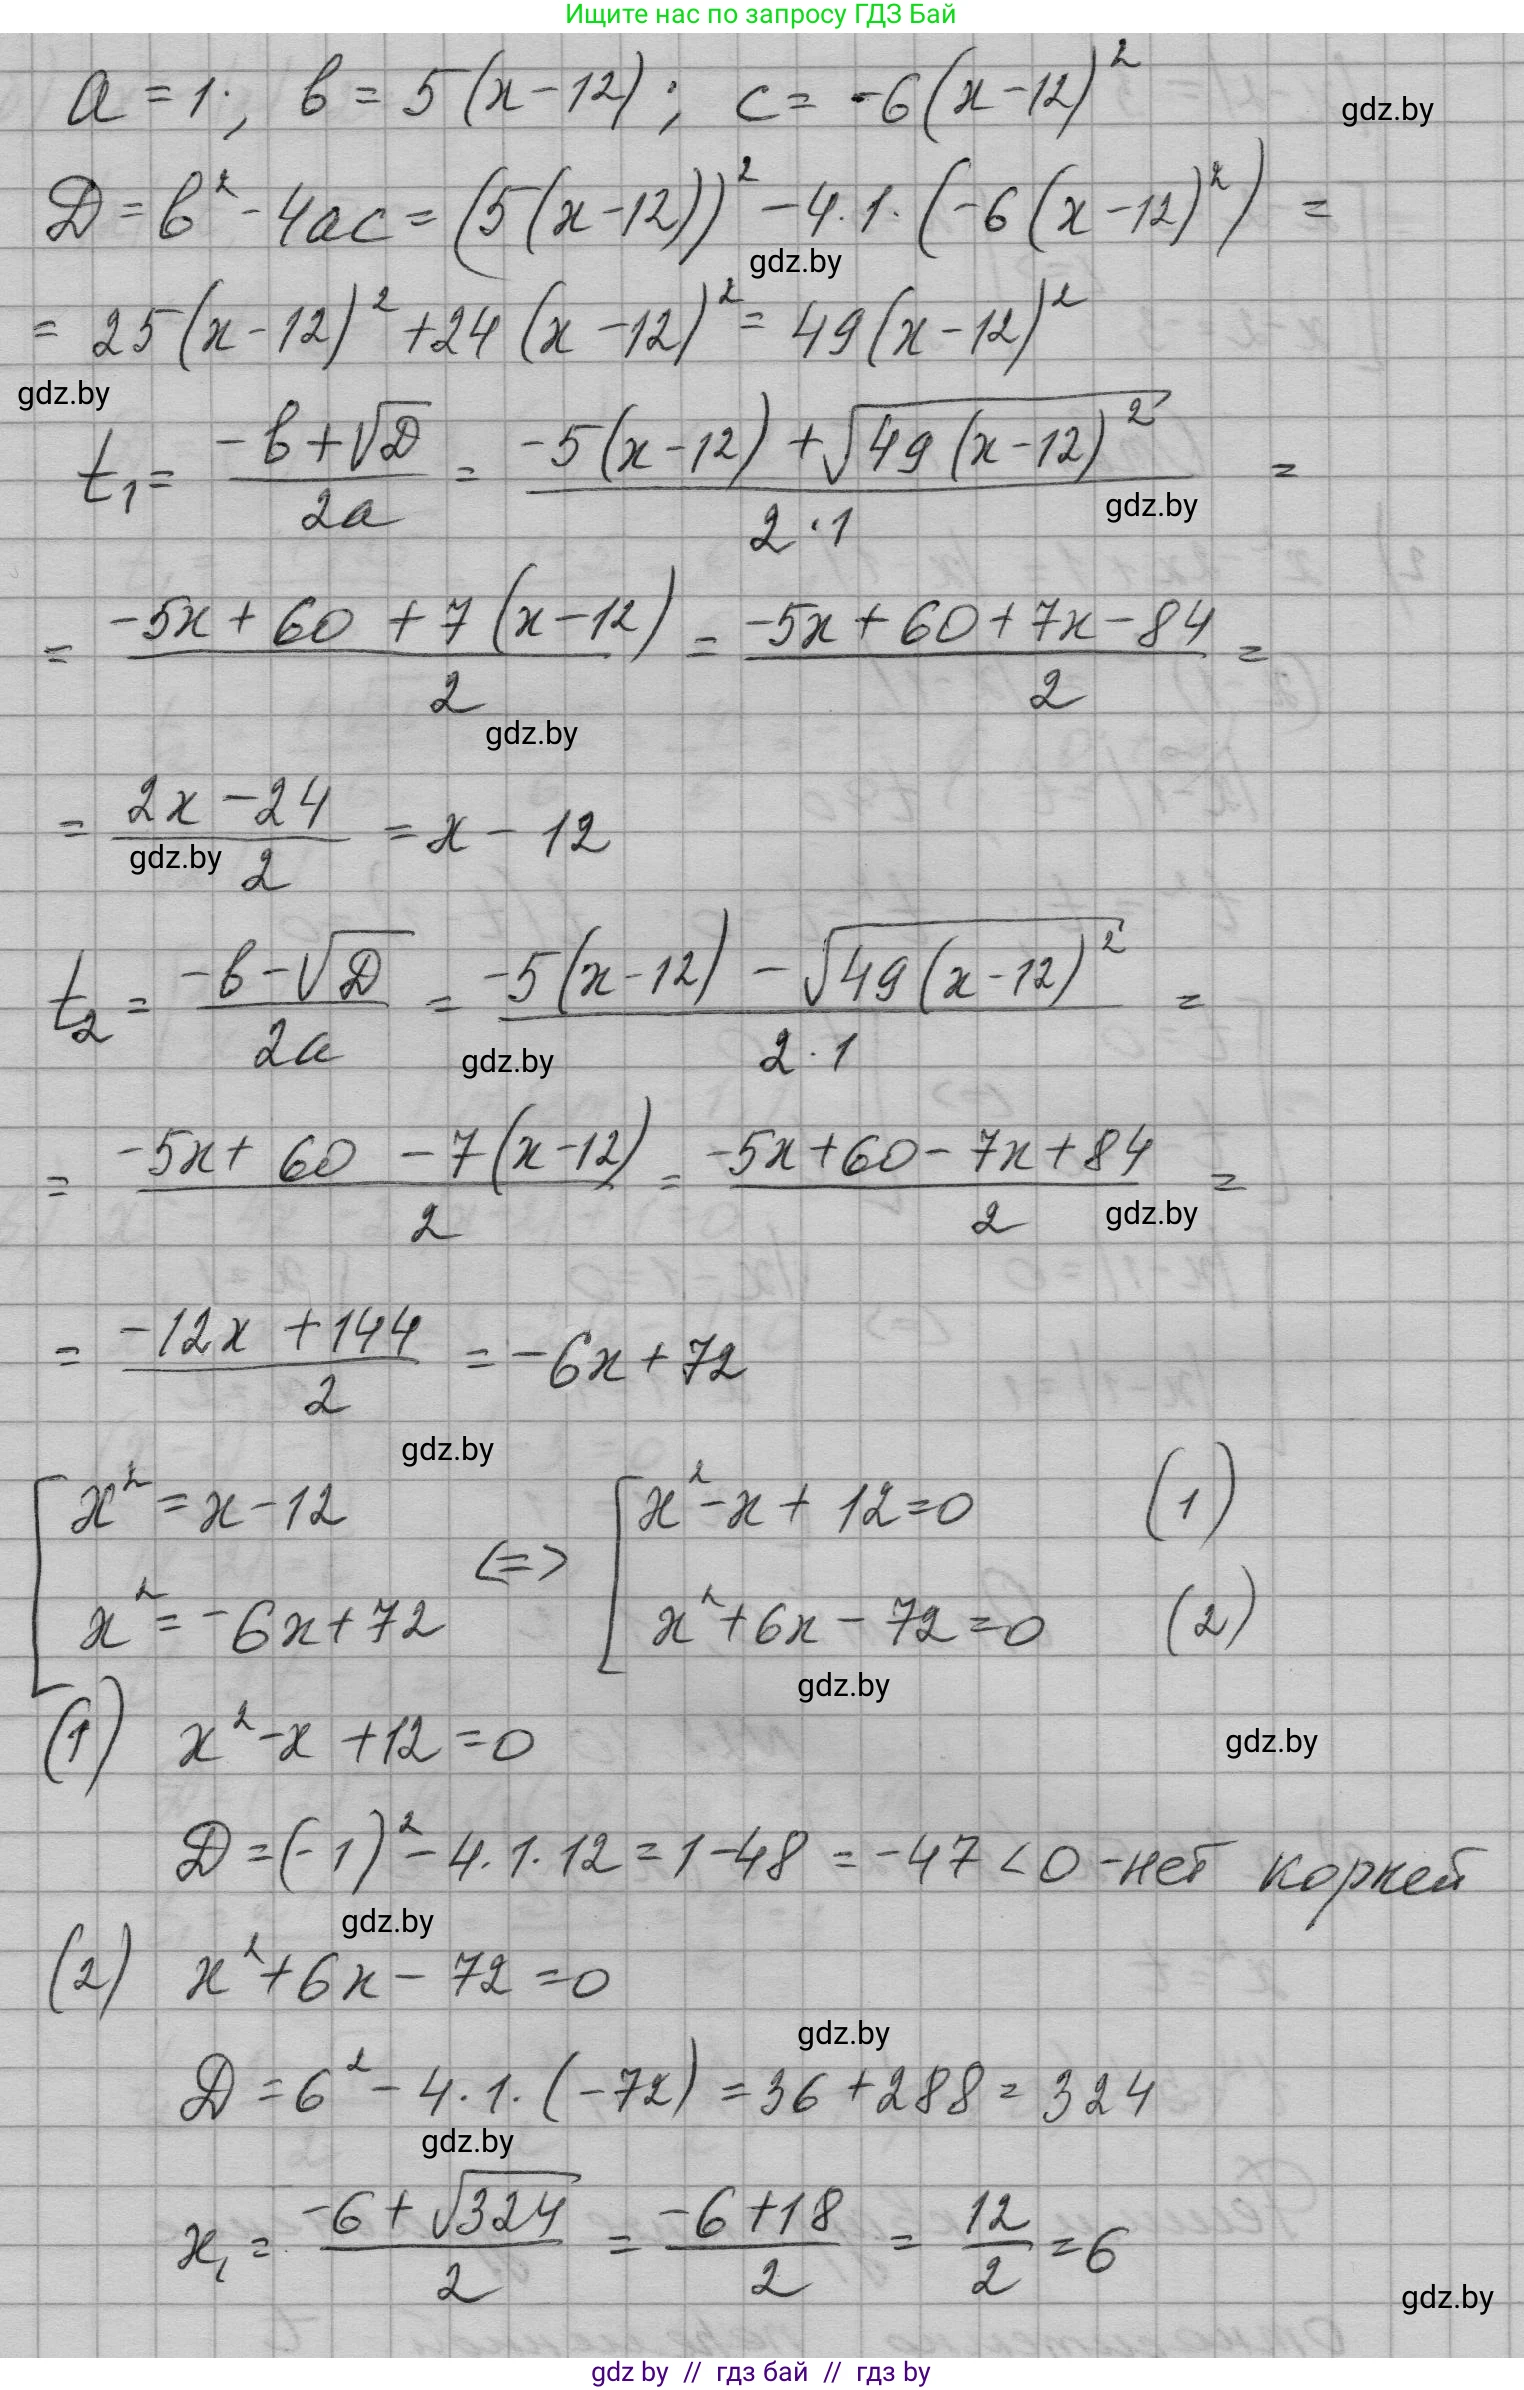 Ищите нас по запросу ГДЗ Бай
a = 1; b = 5(x-12); c = -6(x-12)²
gdz.by
D = b² - 4ac = (5(x-12))² - 4·1·(-6(x-12)²) =
gdz.by
= 25(x-12)² + 24(x-12)² = 49(x-12)²
gdz.by
t₁ = (-b+√D)/(2a) = (-5(x-12) + √(49(x-12)²))/(2·1) =
gdz.by
= (-5x + 60 + 7(x-12))/2 = (-5x + 60 + 7x - 84)/2 =
gdz.by
= (2x - 24)/2 = x - 12
gdz.by
t₂ = (-b-√D)/(2a) = (-5(x-12) - √(49(x-12)²))/(2·1) =
gdz.by
= (-5x + 60 - 7(x-12))/2 = (-5x + 60 - 7x + 84)/2 =
gdz.by
= (-12x + 144)/2 = -6x + 72
gdz.by
[ x² = x - 12 <=> [ x² - x + 12 = 0 (1)
x² = -6x + 72 x² + 6x - 72 = 0 (2)
gdz.by
(1) x² - x + 12 = 0
gdz.by
D = (-1)² - 4·1·12 = 1 - 48 = -47 < 0 - нет корней
gdz.by
(2) x² + 6x - 72 = 0
gdz.by
D = 6² - 4·1·(-72) = 36 + 288 = 324
gdz.by
x₁ = (-6 + √324)/2 = (-6 + 18)/2 = 12/2 = 6
gdz.by
gdz by // гдз бай // гдз by